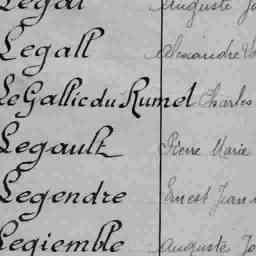 Legal Auguste
Legall Alexandre
Le Gallic du Rumel Charles
Legault Pierre Marie
Legendre Ernest Jean
Legiemble Auguste